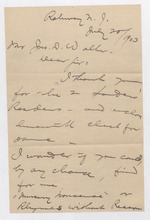 Rahway N. J.
July 20/1903
Mr. Jos. D. Waller.
Dear Sir,
I thank you
for the 2 Sander
Readers - and enclose
herewith check for
same -
I wonder if you could
by any chance, find
for me
"Nursery Nonsense" or
Rhymes without Reason